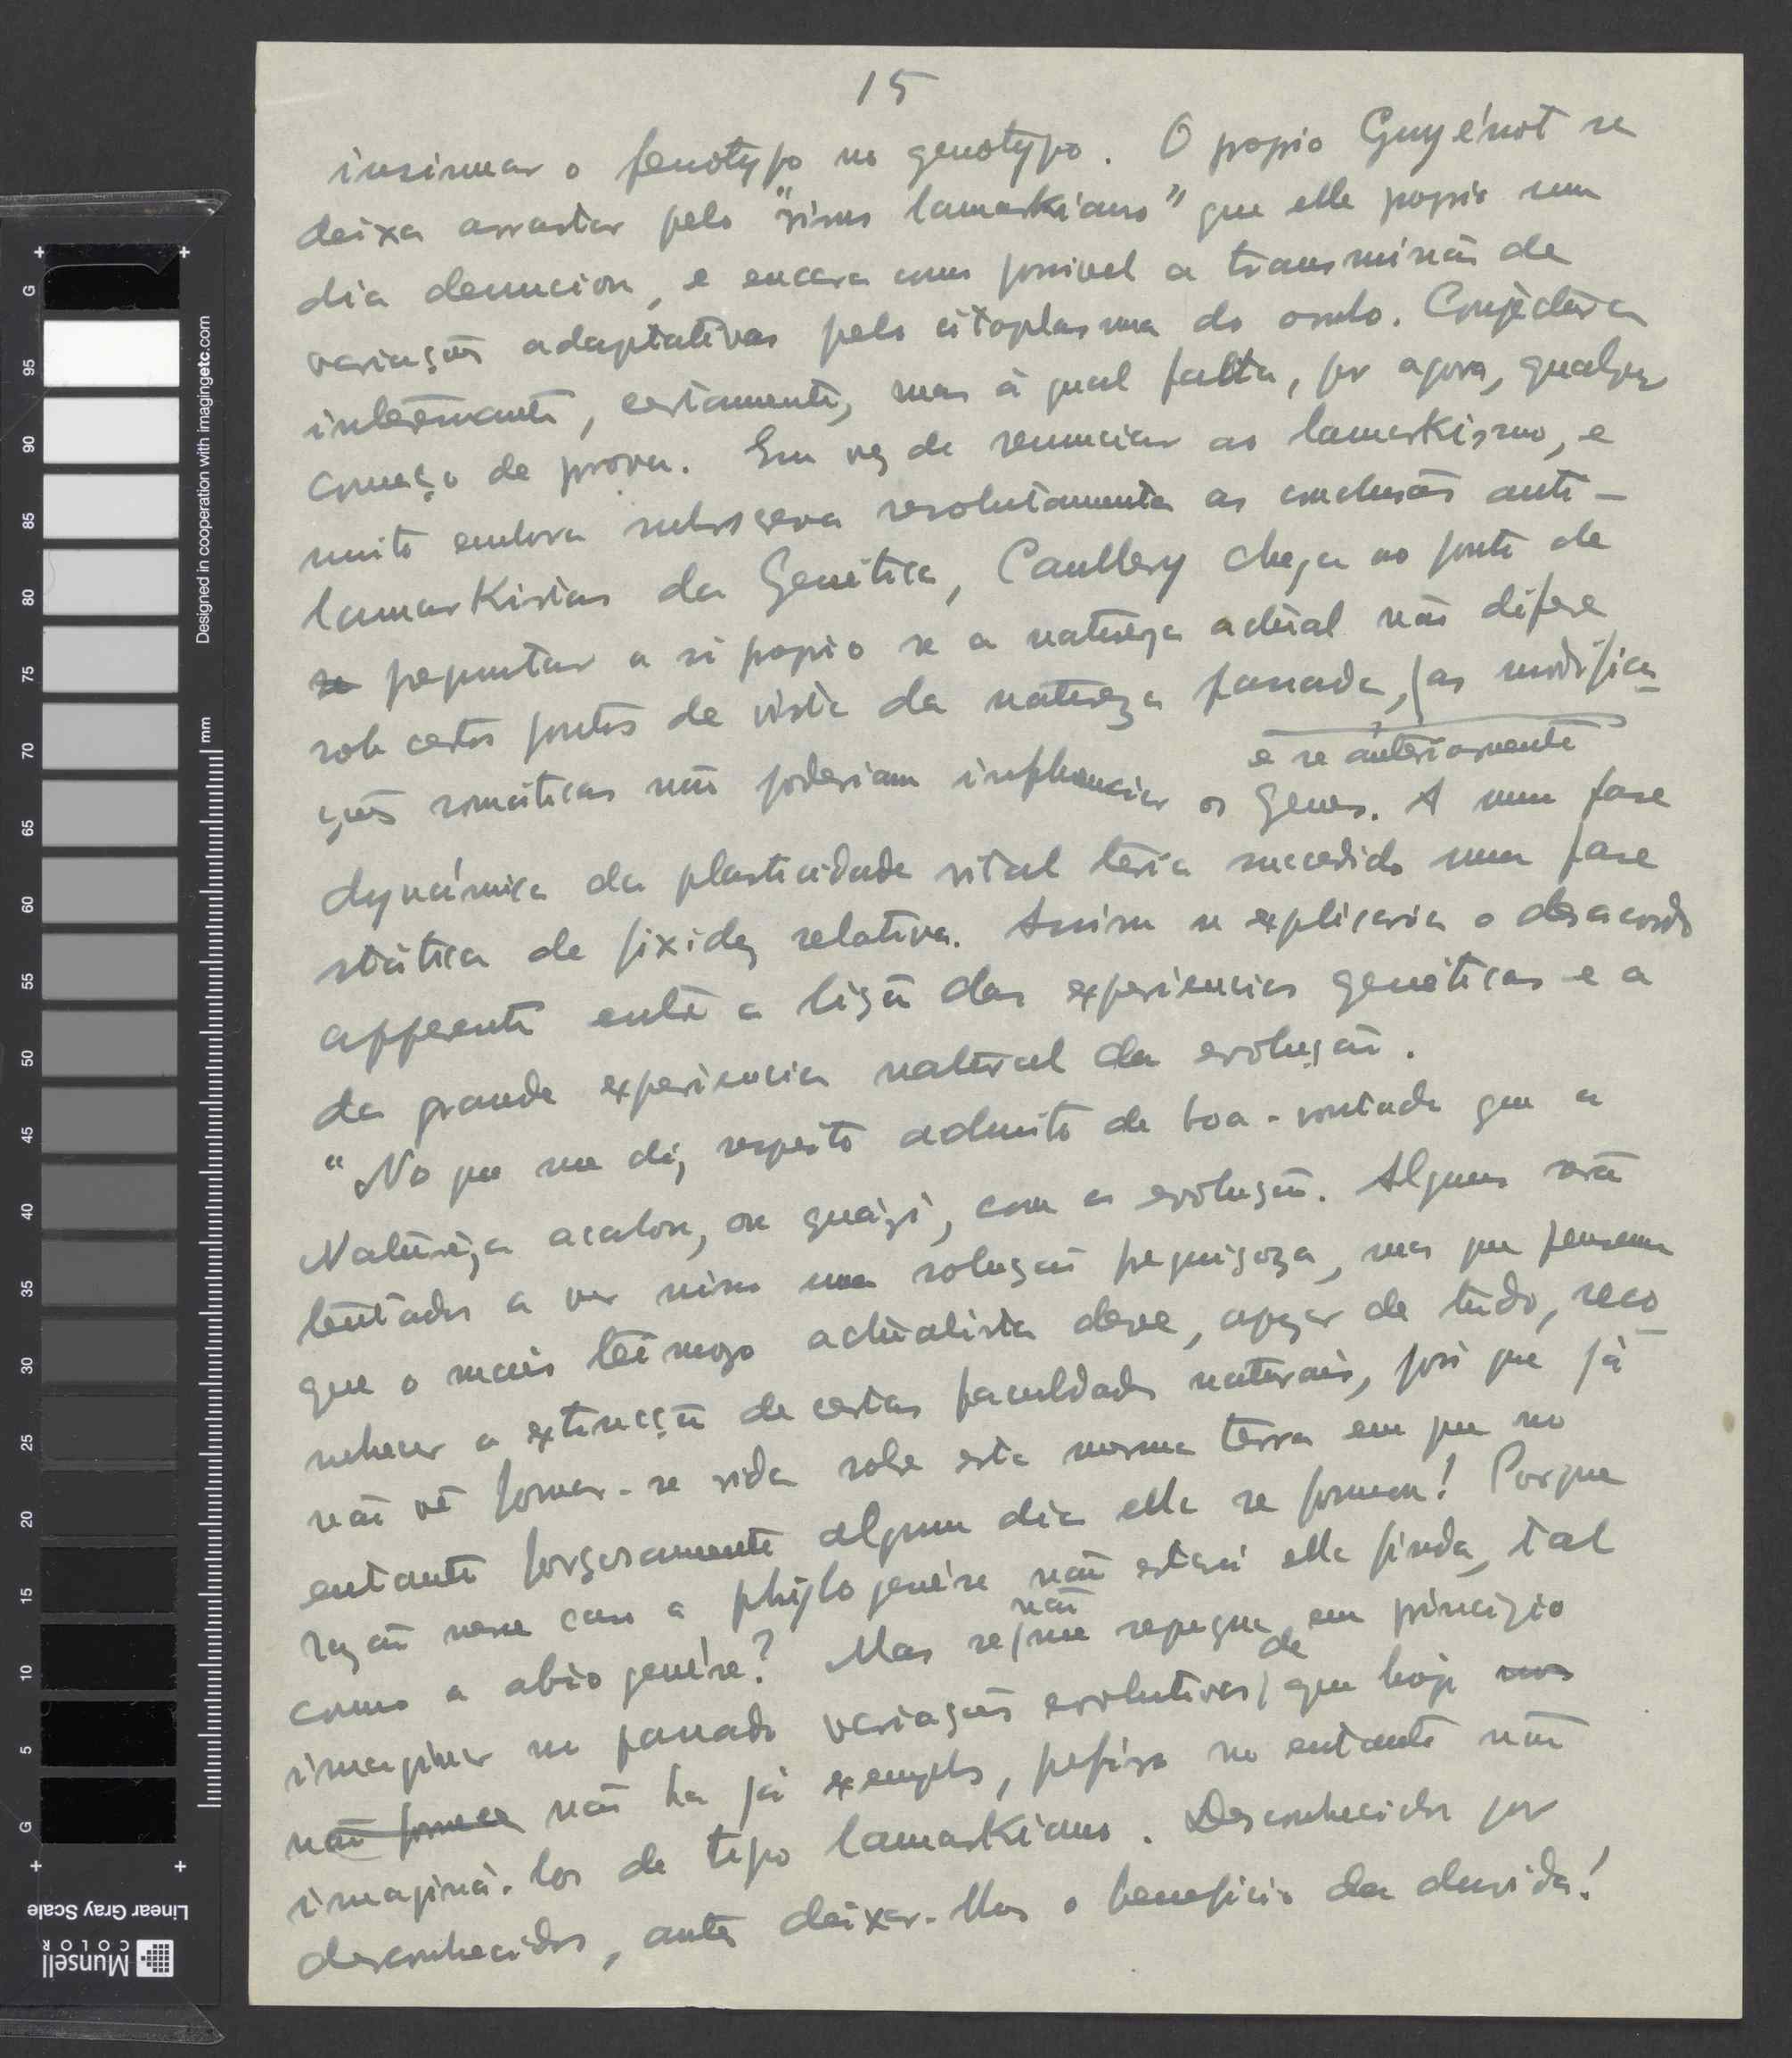 15
insinuar o fenotypo no genotypo. O propio Guyénot se
deixa arrastar pelo "nisus lamarkiano" que elle propio um
dia denunciou, e encara como possivel a transmissão de
variações adaptativas pelo citoplasma do ovulo. Conjectura
interessante, certamente, mas á qual falta, por agora, qualquer
começo de prova. Em vez de renunciar ao lamarkismo, e
muito embora subscreva resolutamente as conclusões anti-
lamarkistas da Genética, Caullery chega ao ponto de
se perguntar a si propio se a natureza actual não difere
sob certos pontos de vista da natureza passada, (as modifica
e se anteriormente
ções somáticas não poderiam influenciar os Genes. A uma fase
dynámica da plasticidade vital teria succedido uma fase
státtica de fixidez relativa. Assim se explicaria o desacordo
apparente entre a lição das experiencias genéticas e a
da grande experiencia natural da evolução.
"No que me diz respeito admito de boa-vontade que a
Natureza acabou, ou quázi, com a evolução. Alguns serão
tentados a ver nisso uma solução preguiçoza, mas que pensem
que o mais teimozo actualista deve, apezar de tudo, reco
nhecer a extincção de certas faculdades naturais, pois que já
não vê formar-se vida sobre esta mesma terra em que no
entanto forçosamente algum dia ella se formou! Porque
razão nesse caso a phylogenése não estará ella finda, tal
como a abiogenése? Mas se me repugna em principio
não
imaginar no passado variações evolutivas que hoje nos
de
não fornece não ha já exemplos, prefiro no entanto não
imaginá-los de typo lamarkiano. Desconhecidos por
desconhecidos, antes deixar-lhes o beneficio da duvida!
Designed in cooperation with imagingetc.com
mm
G
95
90
85
80
75
70
65
60
55
50
45
40
35
30
25
20
15
10
5
G
Linear Gray Scale
Munsell
COLOR